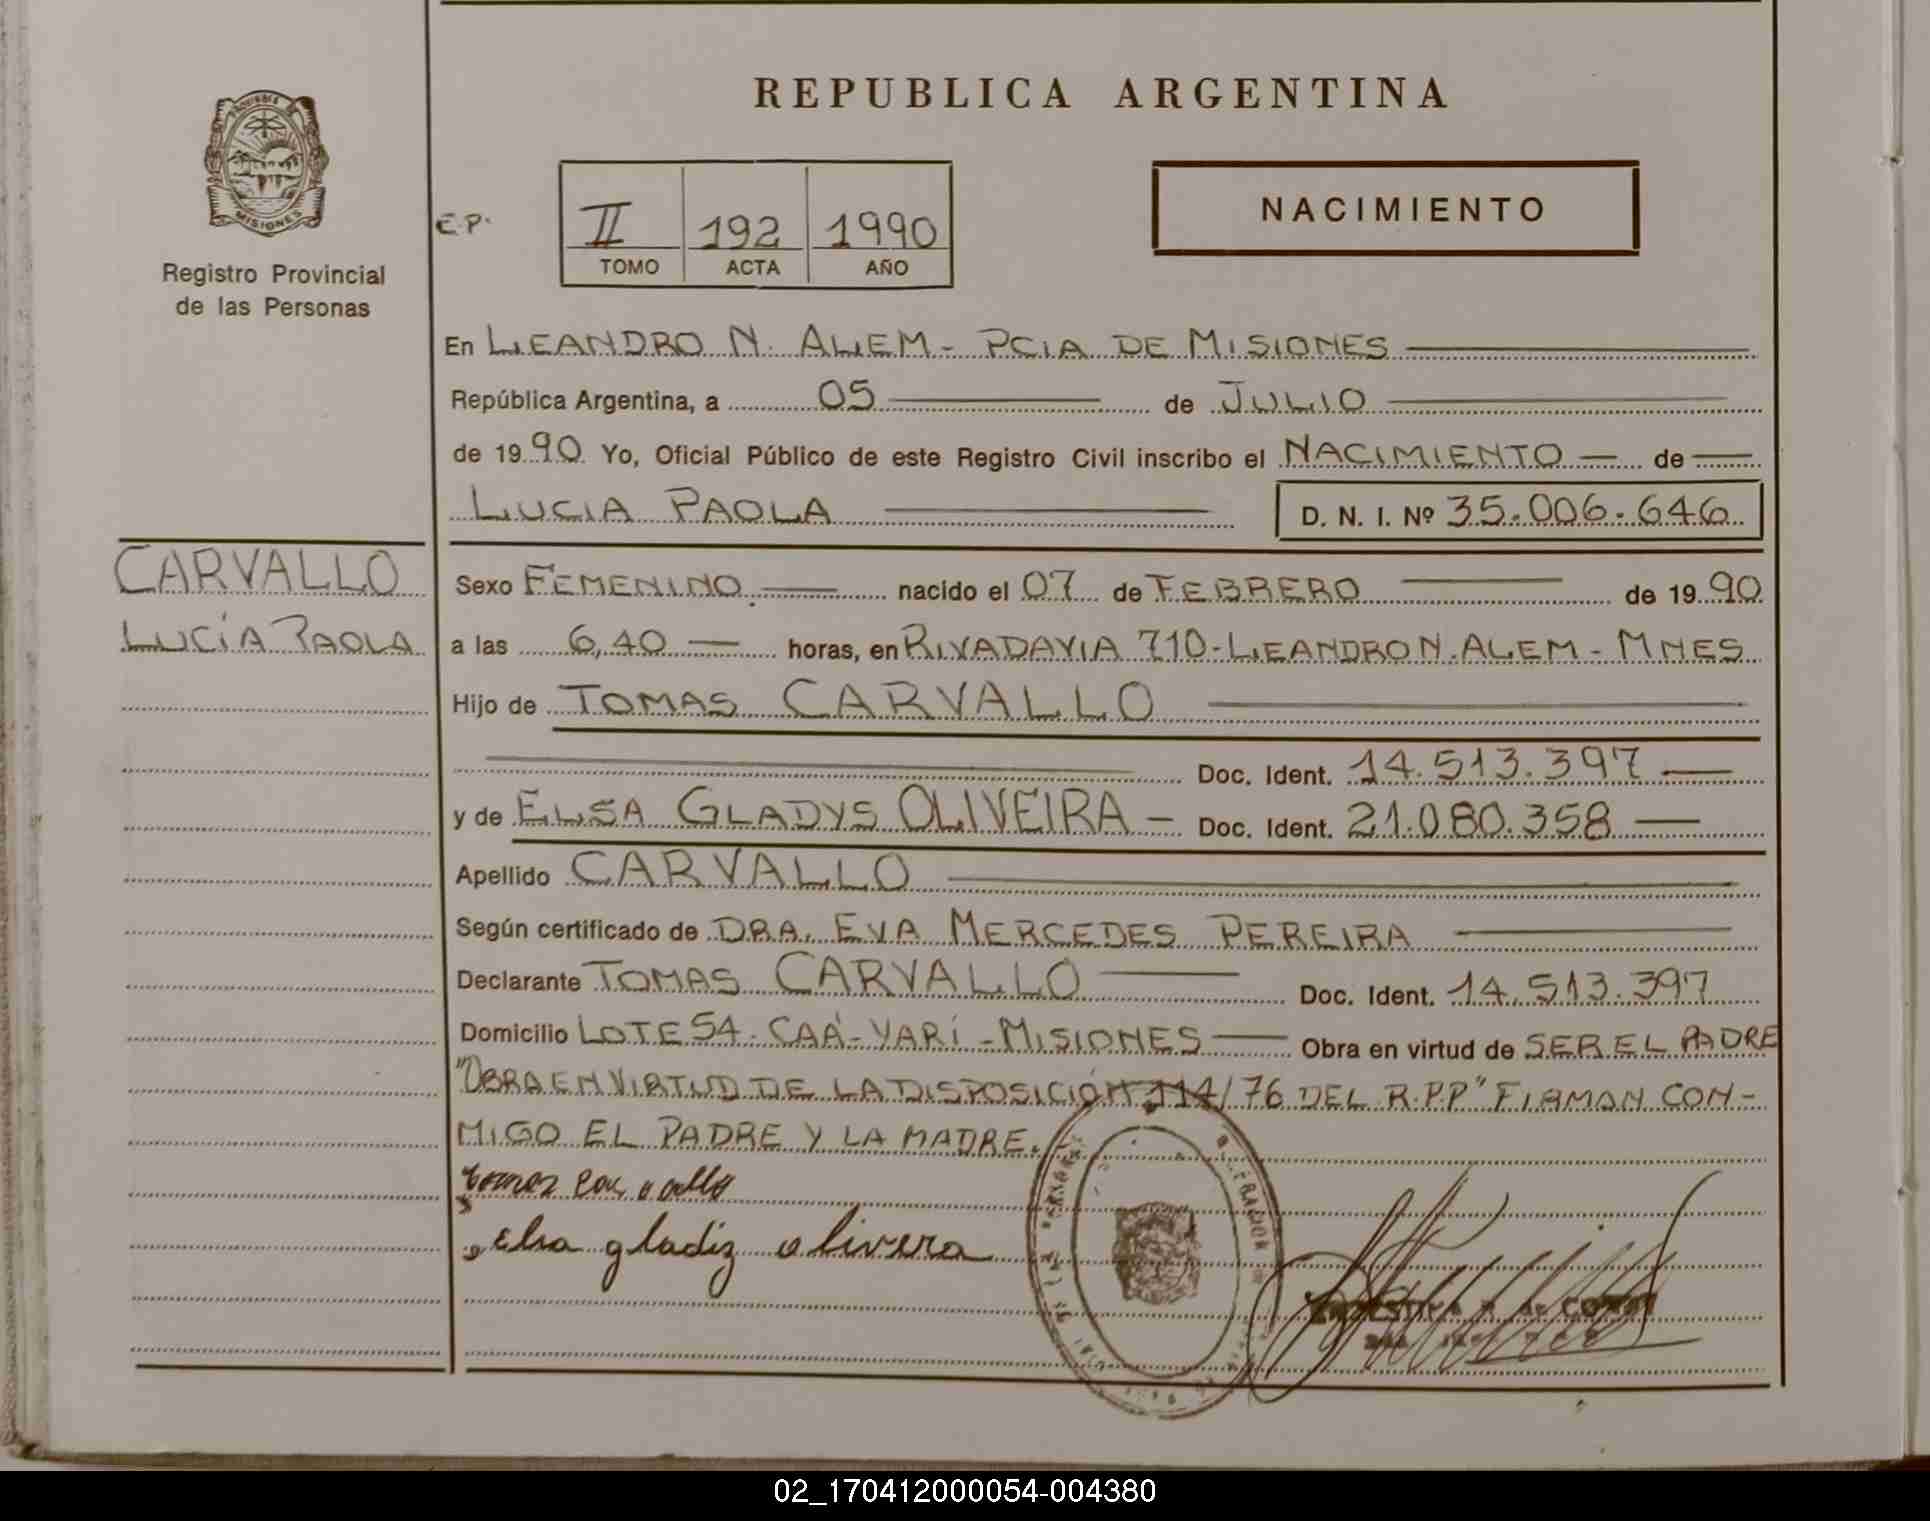 REPUBLICA ARGENTINA
MISIONES
Registro Provincial
de las Personas
E.P.
II 192 1990
TOMO ACTA AÑO
NACIMIENTO
En LEANDRO N. ALEM - PCIA DE MISIONES
República Argentina, a 05 de JULIO
de 1990 Yo, Oficial Público de este Registro Civil inscribo el NACIMIENTO de
LUCIA PAOLA D. N. I. Nº 35.006.646
CARVALLO
LUCÍA PAOLA
Sexo FEMENINO nacido el 07 de FEBRERO de 1990
a las 6,40 horas, en RIVADAVIA 710-LEANDRO N. ALEM - MNES
Hijo de TOMAS CARVALLO
Doc. Ident. 14.513.397
y de ELSA GLADYS OLIVEIRA - Doc. Ident. 21.080.358
Apellido CARVALLO
Según certificado de DRA. EVA MERCEDES PEREIRA
Declarante TOMAS CARVALLO Doc. Ident. 14.513.397
Domicilio LOTE 54 - CAÁ-YARÍ - MISIONES Obra en virtud de SER EL PADRE
"OBRA EN VIRTUD DE LA DISPOSICIÓN 114/76 DEL R.P.P" FIRMAN CON-
MIGO EL PADRE Y LA MADRE.
tomas carvallo
elsa gladiz olivera
02_170412000054-004380